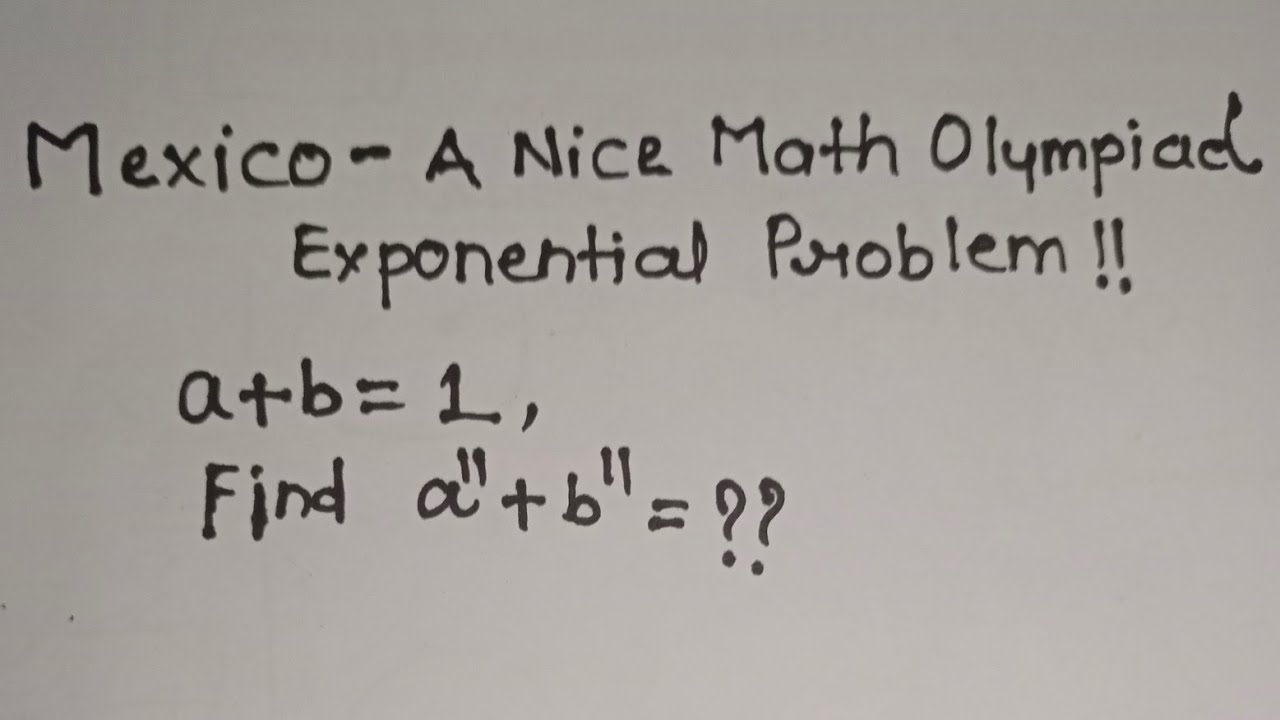 Mexico - A Nice Math Olympiad
Exponential Problem !!
a+b= 1,
Find a¹¹ + b¹¹ = ??